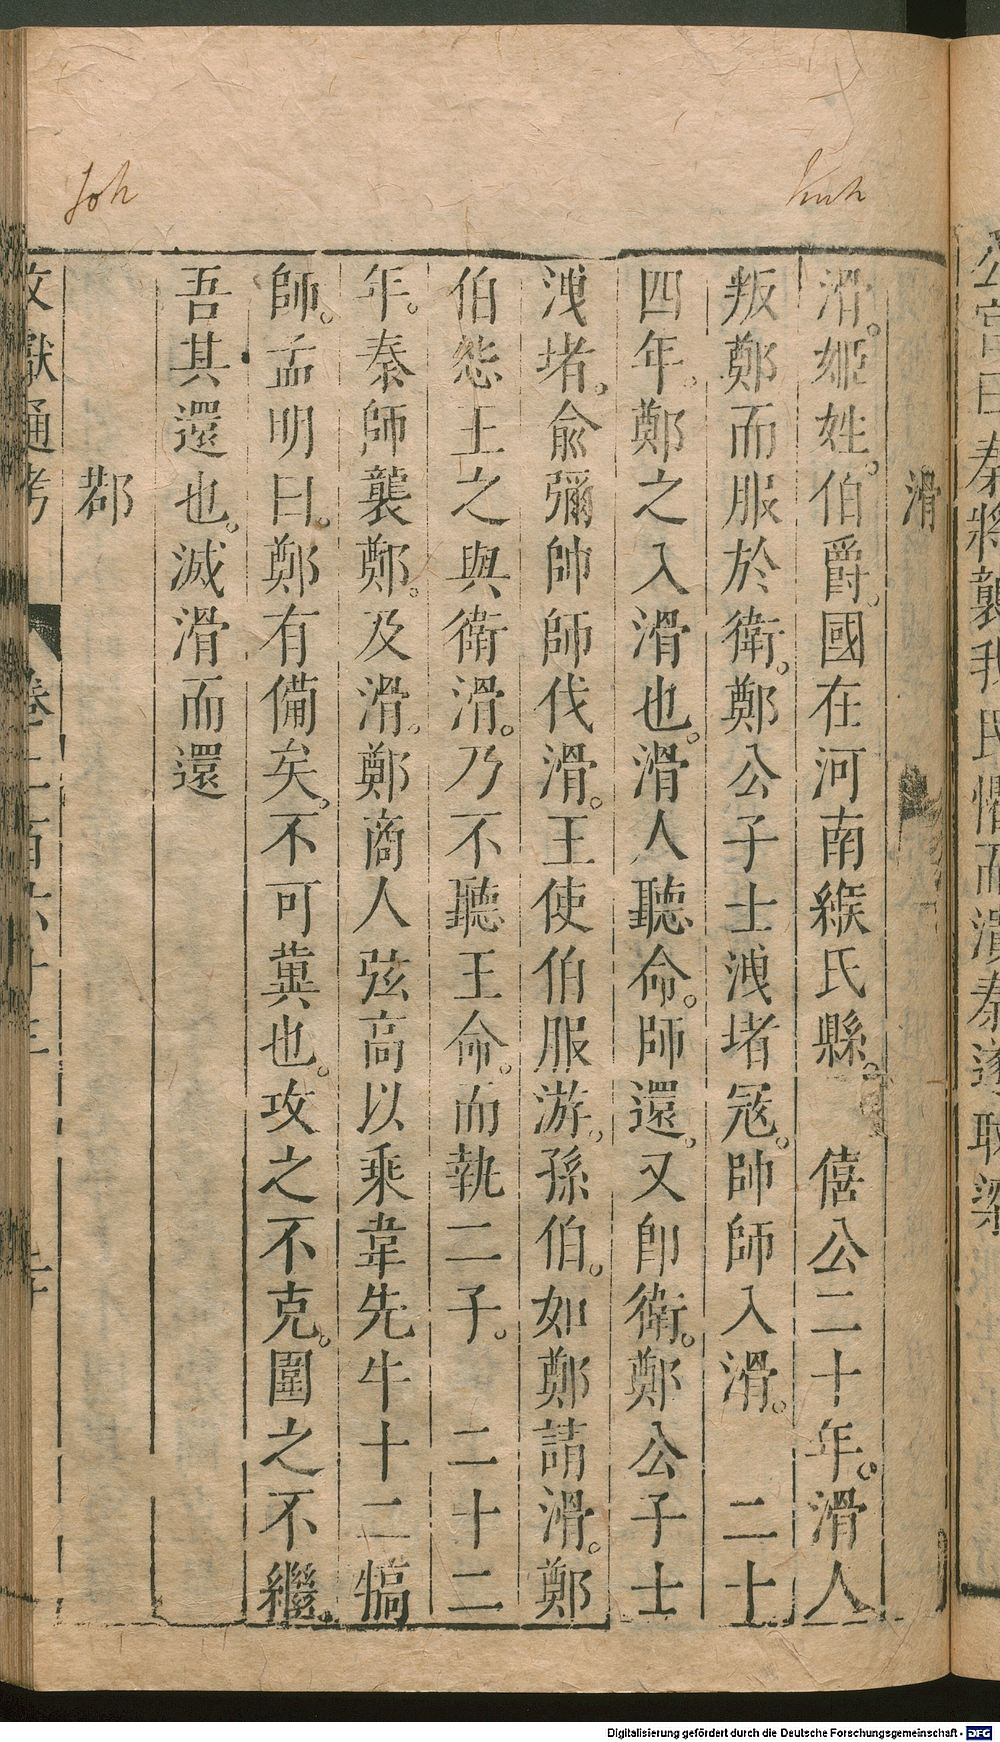 kuh
joh
公宮曰秦將襲我民懼而潰秦遂取梁
滑
滑。姬姓。伯爵。國在河南緱氏縣。　僖公二十年。滑人
叛鄭而服於衛。鄭公子士洩堵冦。帥師入滑。　二十
四年。鄭之入滑也。滑人聽命。師還。又卽衛。鄭公子士
洩堵。俞彌帥師伐滑。王使伯服游。孫伯。如鄭請滑。鄭
伯怨王之與衛滑。乃不聽王命。而執二子。　二十二
年。秦師襲鄭。及滑。鄭商人弦高以乘韋先牛十二犒
師。孟明曰。鄭有備矣。不可冀也。攻之不克。圍之不繼。
吾其還也。滅滑而還
鄀
文獻通考　卷二百六十三
Digitalisierung gefördert durch die Deutsche Forschungsgemeinschaft - DFG